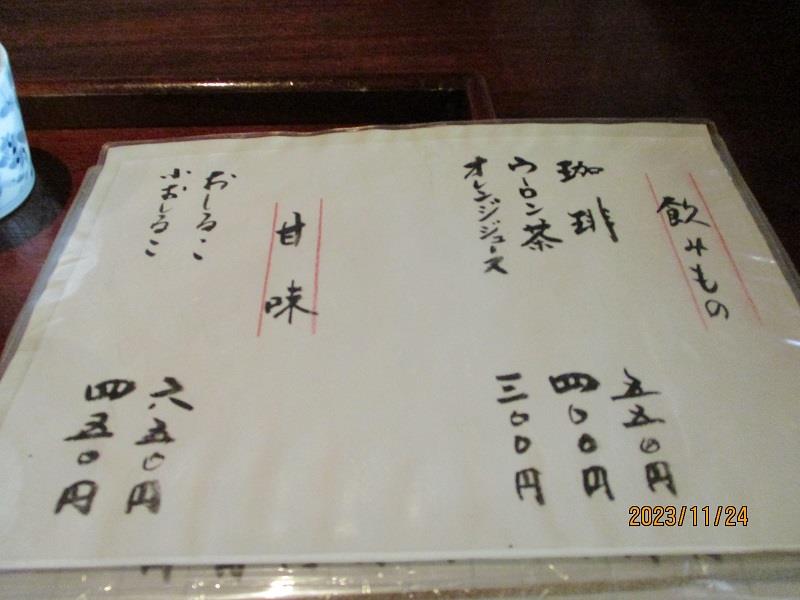 飲みもの
珈琲 五五〇円
ウーロン茶 四〇〇円
オレンジジュース 三〇〇円
甘味
おしるこ 六五〇円
小おしるこ 四五〇円
2023/11/24